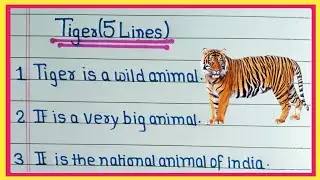 Tiger(5 Lines)
1 Tiger is a wild animal.
2 It is a very big animal.
3 It is the national animal of India.